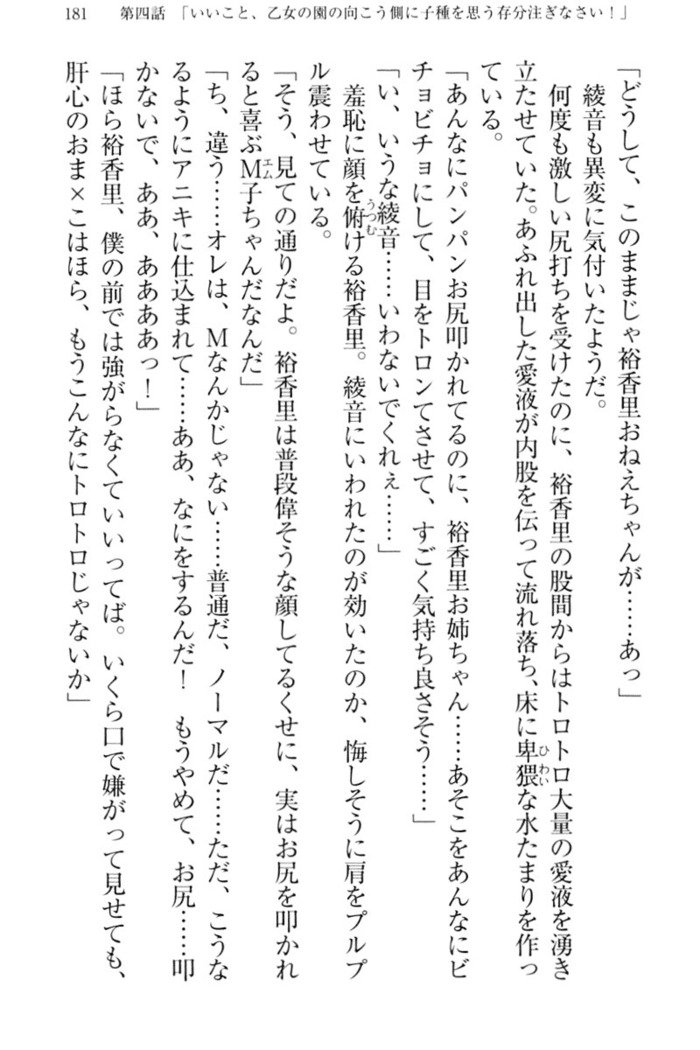 181　第四話　「いいこと、乙女の園の向こう側に子種を思う存分注ぎなさい！」
「どうして、このままじゃ裕香里おねえちゃんが……あっ」
綾音も異変に気付いたようだ。
何度も激しい尻打ちを受けたのに、裕香里の股間からはトロトロ大量の愛液を湧き
立たせていた。あふれ出した愛液が内股を伝って流れ落ち、床に卑猥な水たまりを作っ
ている。
「あんなにパンパンお尻叩かれてるのに、裕香里お姉ちゃん……あそこをあんなにビ
チョビチョにして、目をトロンてさせて、すごく気持ち良さそう……」
「い、いうな綾音……いわないでくれぇ……」
羞恥に顔を俯ける裕香里。綾音にいわれたのが効いたのか、悔しそうに肩をプルプ
ル震わせている。
「そう、見ての通りだよ。裕香里は普段偉そうな顔してるくせに、実はお尻を叩かれ
ると喜ぶM子ちゃんだなんだ」
「ち、違う……オレは、Mなんかじゃない……普通だ、ノーマルだ……ただ、こうな
るようにアニキに仕込まれて……ああ、なにをするんだ！　もうやめて、お尻……叩
かないで、ああ、ああああっ！」
「ほら裕香里、僕の前では強がらなくていいってば。いくら口で嫌がって見せても、
肝心のおま×こはほら、もうこんなにトロトロじゃないか」